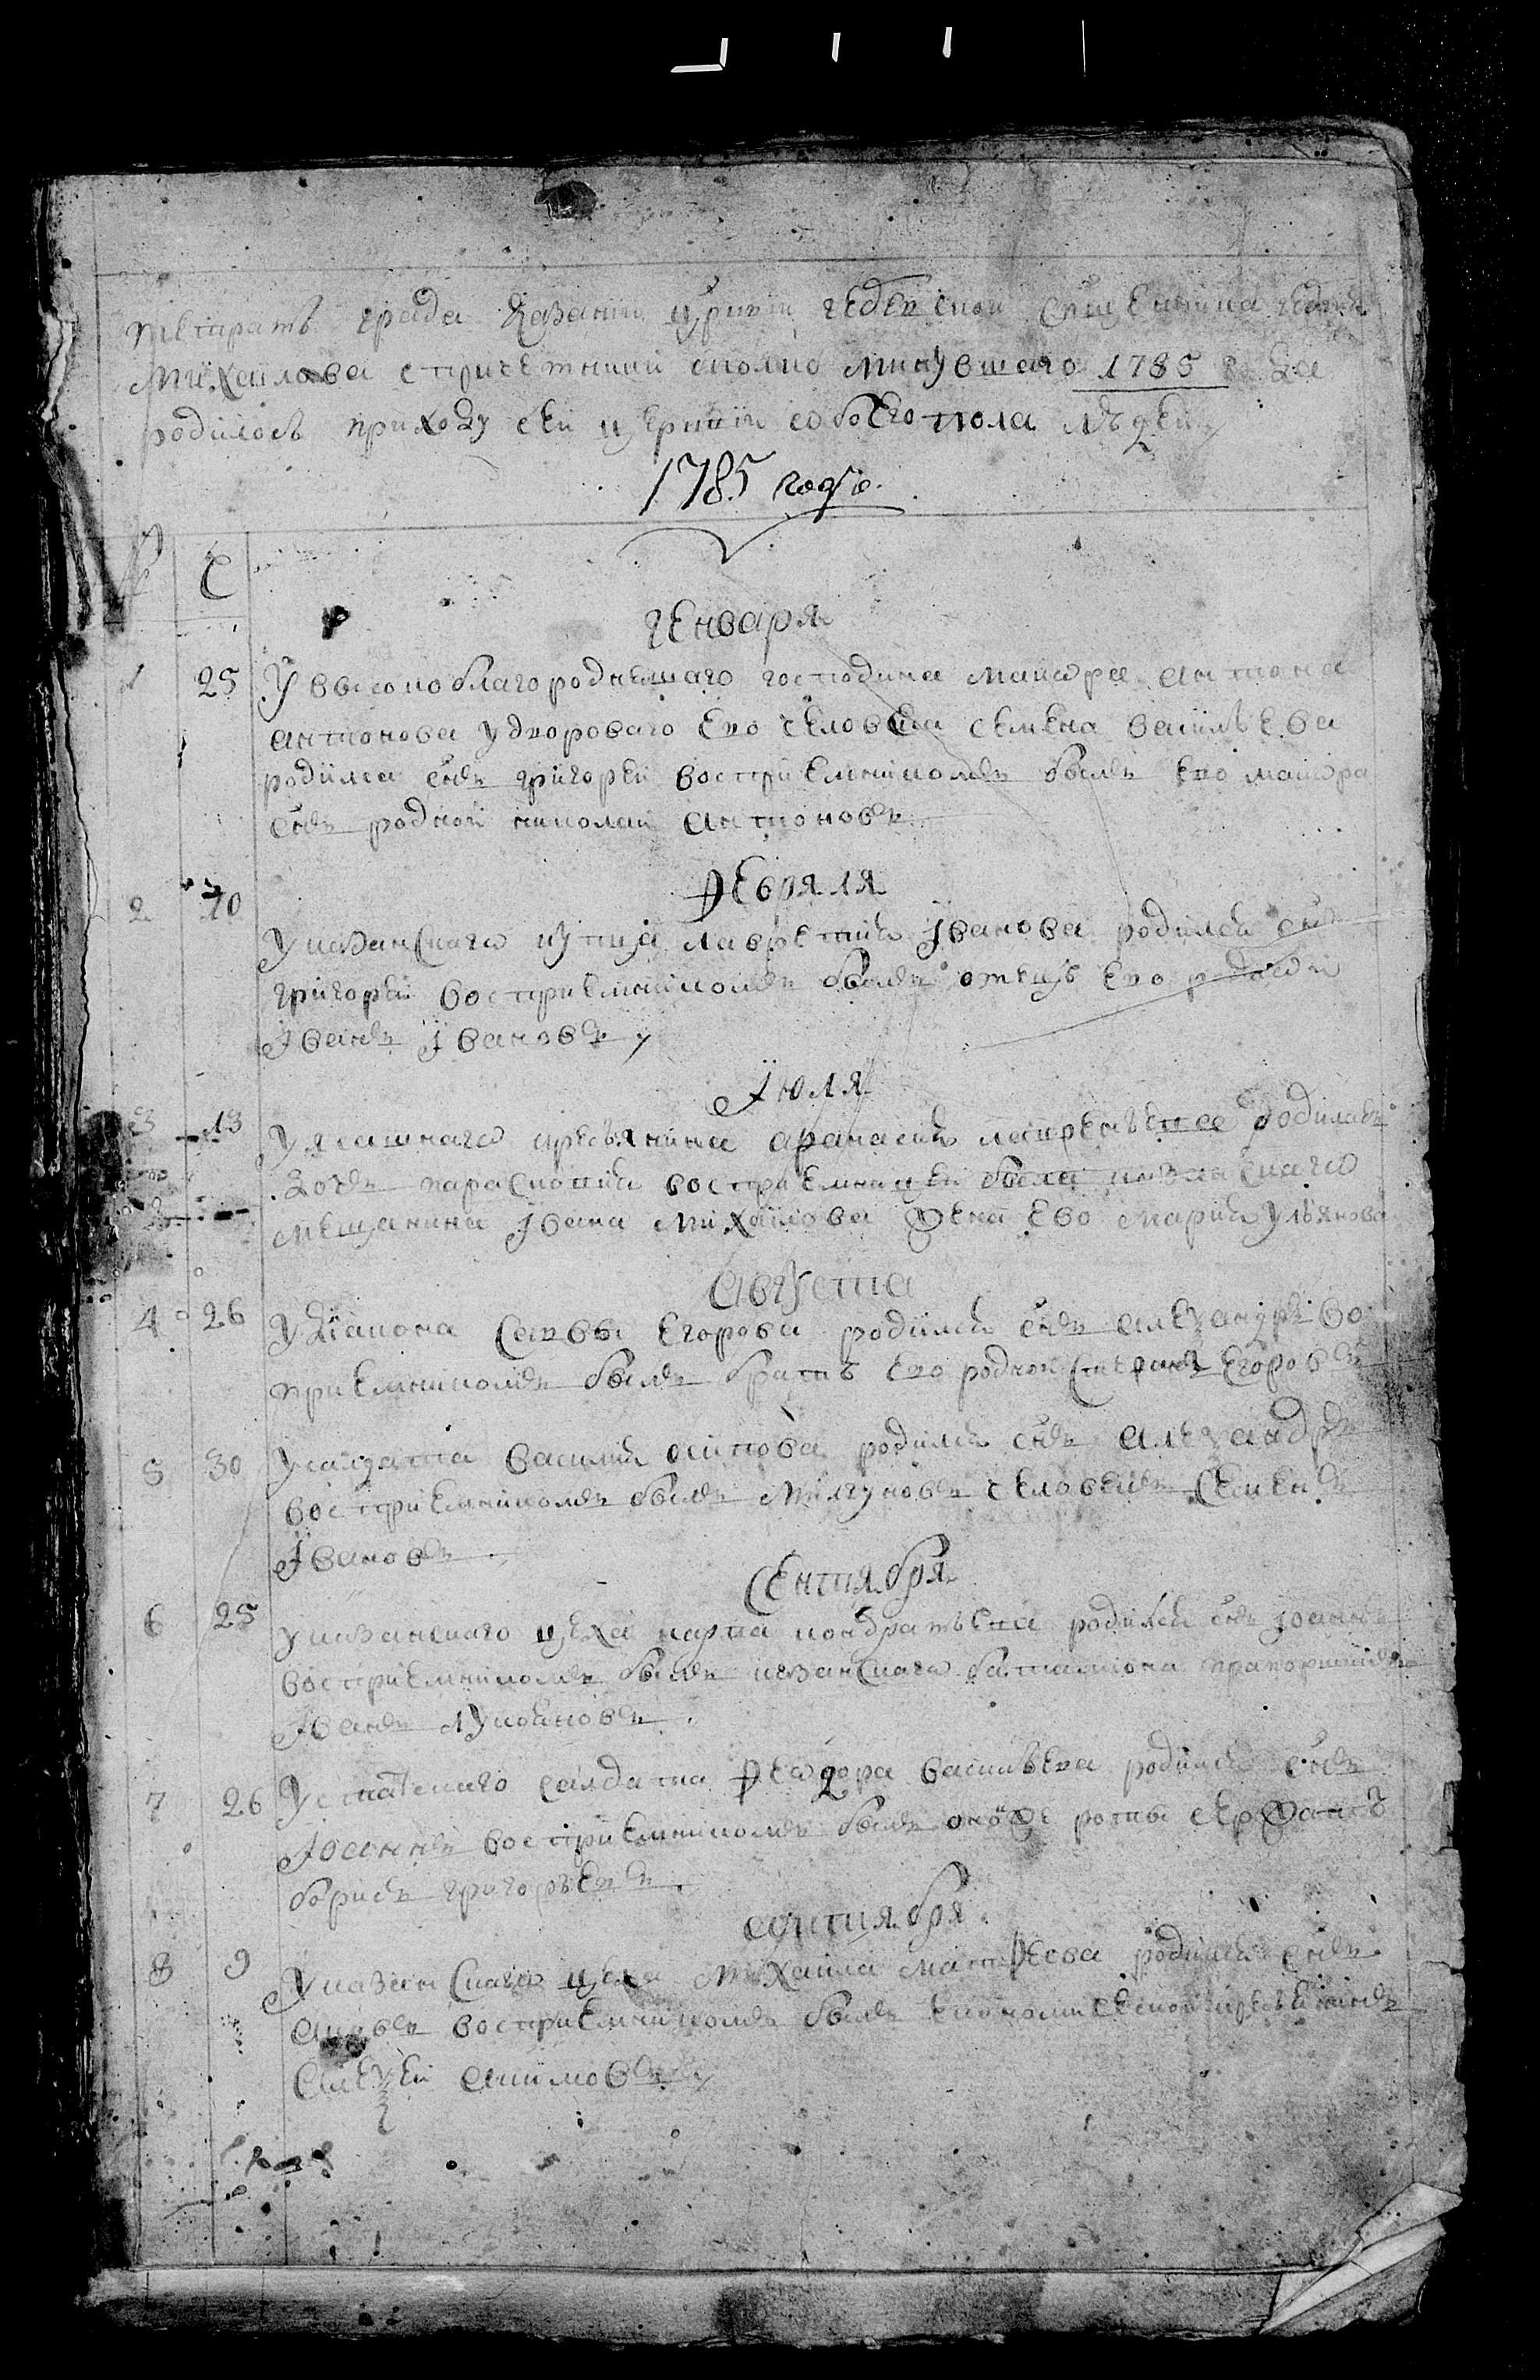 тетрать града Казани церкви священника
Михаилова с причетники сколко минувшаго 1785 года
родилось приходу сей церкви обоего пола людей
1785 году
С
генваря
1 25 У высокоблагороднешаго господина маиора антона
антонова у дворового ево человека семена васильева
родился снъ григореи восприемникомъ былъ ево маиора
снъ родной николаи антоновъ
февраля
2 10
У казанскаго купца лаврентия Iванова родился снъ
григореи восприемникомъ былъ отецъ ево родной
Iванъ Iвановъ
Iюля
3 13 У ясашнаго крестьянина афанасия родилась
дочь параскопия восприемницей была казанскаго
мещанина Iвана михаилова жена ево мария ульянова
августа
4 26 У дiакона саввы егорова родился снъ александръ во
приемникомъ былъ братъ ево родной стефанъ егоровъ
5 30 У салдата василия осипова родился снъ александръ
восприемникомъ былъ человекъ семенъ
Iвановъ
сентября
6 25 У казанскаго цеха карпа кондратьева родился снъ Iоаннъ
восприемникомъ былъ казанскаго баталиона прапорщикъ
Iванъ лукояновъ
7 26 У статскаго салдата феодора васильева родился снъ
Iоаннъ восприемникомъ былъ оной же роты сержантъ
борисъ григорьевъ
октября
8 9 У казанскаго цеха михаила матфеева родился снъ
восприемникомъ былъ економической крестьянинъ
алексеи акимовъ